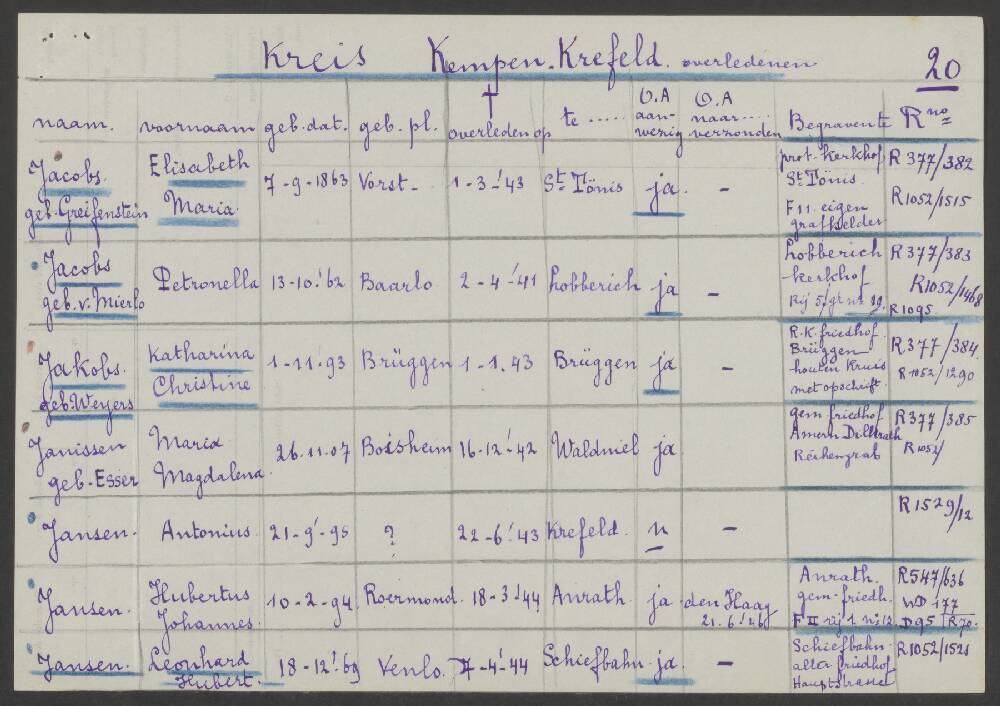 Kreis Kempen-Krefeld. overledenen 20
naam. voornaam geb.dat. geb. pl. † overleden op te ..... O.A aan-wezig O.A naar.... verzonden Begraven te R no
Jacobs. geb. Greifenstein Elisabeth Maria. 7-9-1863 Vorst- 1-3-'43 St Tönis ja. - prot. kerkhof St Tönis. F 11. eigen grafkelder R 377/382 R1052/1515
Jacobs geb. v. Mierlo Petronella 13-10-'62 Baarlo 2-4-'41 Lobberich ja - Lobberich kerkhof Rij 5/gr. nr 29. R 377/383 R1052/1468 R1095
Jakobs. geb. Weyers Katharina Christine 1-11-93 Brüggen 1-1-43 Brüggen ja - R.K. friedhof Brüggen houten Kruis met opschift. R377/384 R 1052/1290
Janissen geb-Esser Maria Magdalena. 26.11.07 Boisheim 16-12-'42 Waldniel ja gem friedhof Amern Reihengrab R377/385 R1052/
Jansen. Antonius. 21-9'-95 ? 22-6-'43 Krefeld. n - R1529/12
Jansen. Hubertus Johannes. 10-2-94. Roermond. 18-3-'44 Anrath. ja. den Haag 21.6.'46 Anrath. gem-friedh. F II rij 1. nr. 12. R547/636 WD 177 D95 R70.
Jansen. Leonhard Hubert. 18-12-'69 Venlo. 7-4-'44 Schiefbahn ja. - Schiefbahn alter friedhof Hauptstrasse R1052/1521